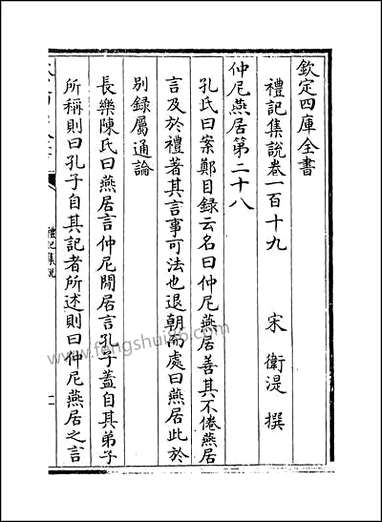 欽定四庫全書
禮記集說卷一百十九
宋 衛湜 撰
仲尼燕居第二十八
孔氏曰案鄭目錄云名曰仲尼燕居善其不倦燕居
言及於禮著其言事可法也退朝而處曰燕居此於
別錄屬通論
長樂陳氏曰燕居言仲尼閒居言孔子蓋自其弟子
所稱則曰孔子自其記者所述則曰仲尼燕居之言
禮記集說
一